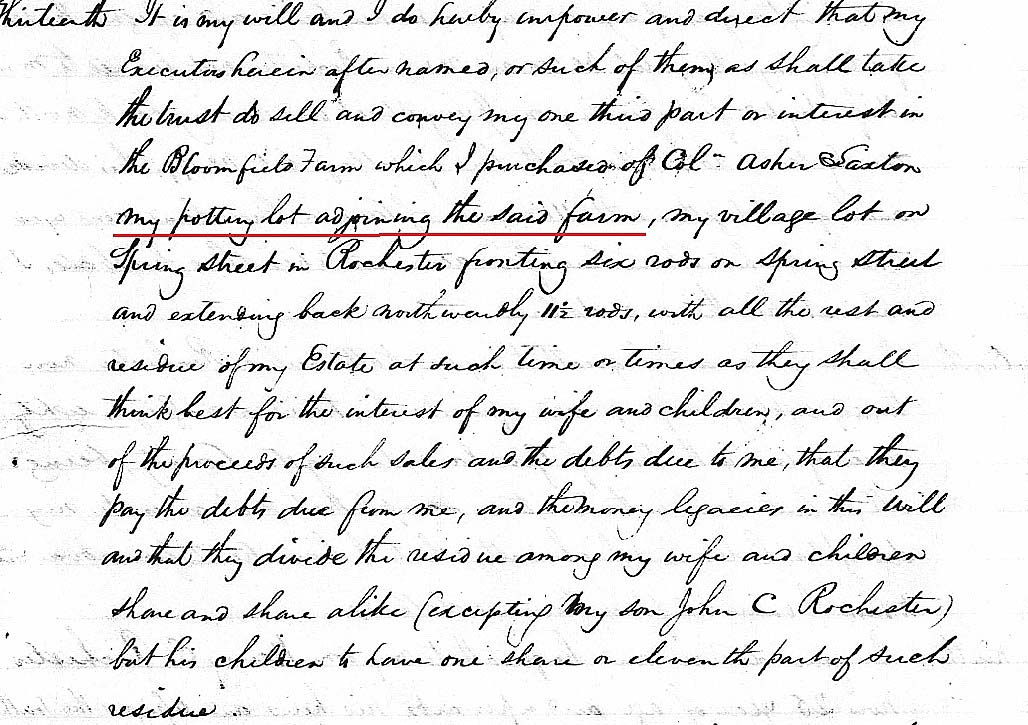 Thirteenth It is my will and I do hereby impower and direct that my
Executors herein after named, or such of them, as shall take
the trust do sell and convey my one third part or interest in
the Bloomfield Farm which I purchased of Col- Asher Saxton
my pottery lot adjoining the said farm, my village lot on
Spring street in Rochester fronting six rods on Spring street
and extending back northwardly 11½ rods, with all the rest and
residue of my Estate at such time or times as they shall
think best for the interest of my wife and children, and out
of the proceeds of such sales and the debts due to me, that they
pay the debts due from me, and the money legacies in this will
and that they divide the residue among my wife and children
share and share alike (excepting my son John C Rochester)
but his children to have one share or eleventh part of such
residue.